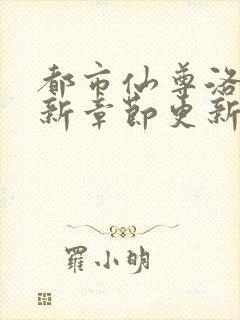 都市仙尊洛
新章節更新
羅小明